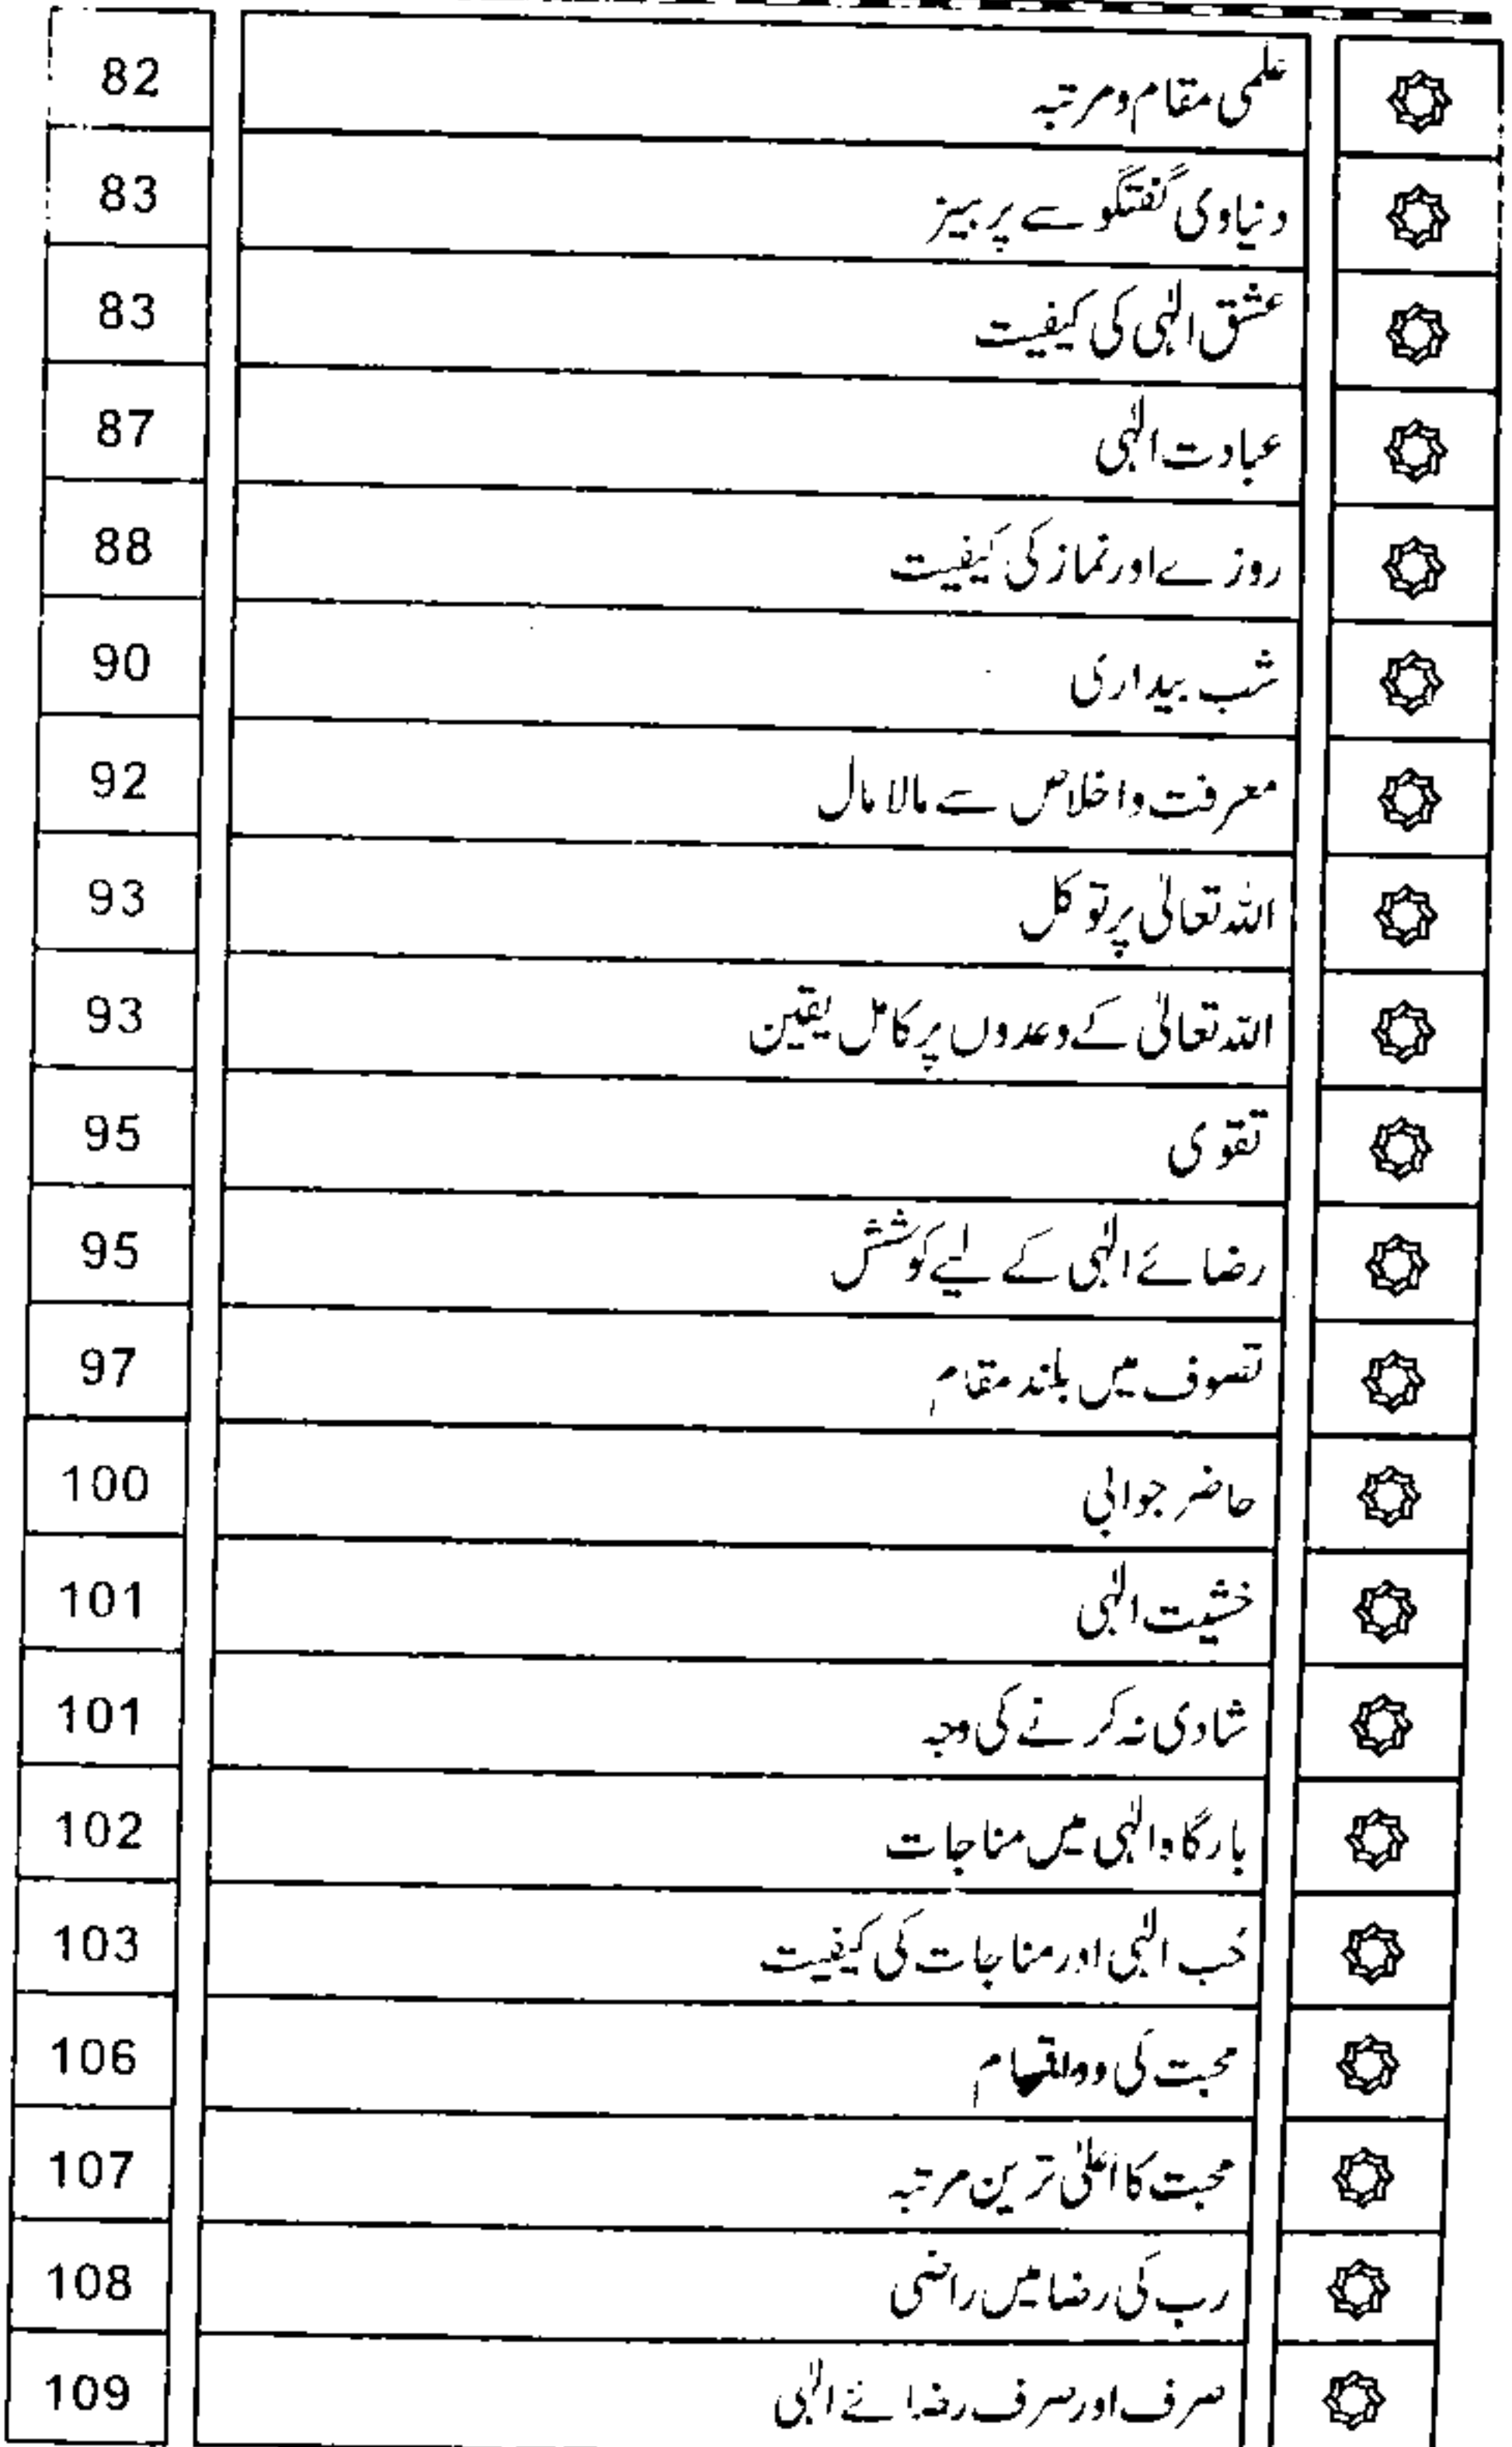 علمی مقام و مرتبہ 82
دنیاوی گفتگو سے پرہیز 83
عشق الٰہی کی کیفیت 83
عبادت الٰہی 87
روزے اور نماز کی کیفیت 88
شب بیداری 90
معرفت و اخلاص سے مالا مال 92
اللہ تعالیٰ پر توکل 93
اللہ تعالیٰ کے وعدوں پر کامل یقین 93
تقوی 95
رضائے الٰہی کے لیے کوشش 95
تصوف میں بلند مقام 97
حاضر جوابی 100
خشیت الٰہی 101
شادی نہ کرنے کی وجہ 101
بارگاہ الٰہی میں مناجات 102
حُب الٰہی اور مناجات کی کیفیت 103
محبت کی دو اقسام 106
محبت کا اعلیٰ ترین مرتبہ 107
رب کی رضا میں راضی 108
صرف اور صرف رضائے الٰہی 109